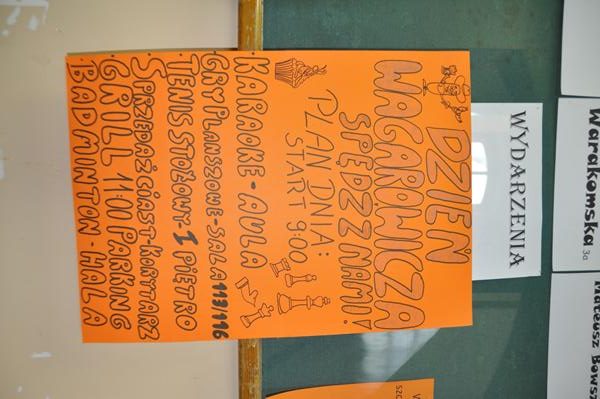 DZIEŃ
WAGAROWICZA
SPĘDŹ Z NAMI!
PLAN DNIA:
START 9:00
KARAOKE - AULA
GRY PLANSZOWE - SALA 113/116
TENIS STOŁOWY - 1 PIĘTRO
SPRZEDAŻ CIAST - KORYTARZ
GRILL 11:00 PARKING
BADMINTON - HALA
WYDARZENIA
Warakomska 3a
Mateusz Bowsz